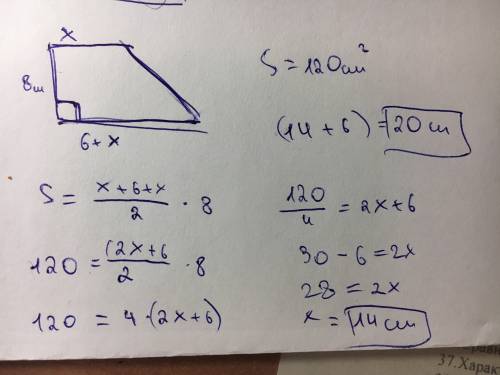 x
8см
6+x
S = 120см²
(14 + 6) = 20 см
S = \frac{x+6+x}{2} · 8
120 = \frac{(2x+6}{2} · 8
120 = 4·(2x+6)
\frac{120}{4} = 2x+6
30 - 6 = 2x
28 = 2x
x = 14 см
37.Харак